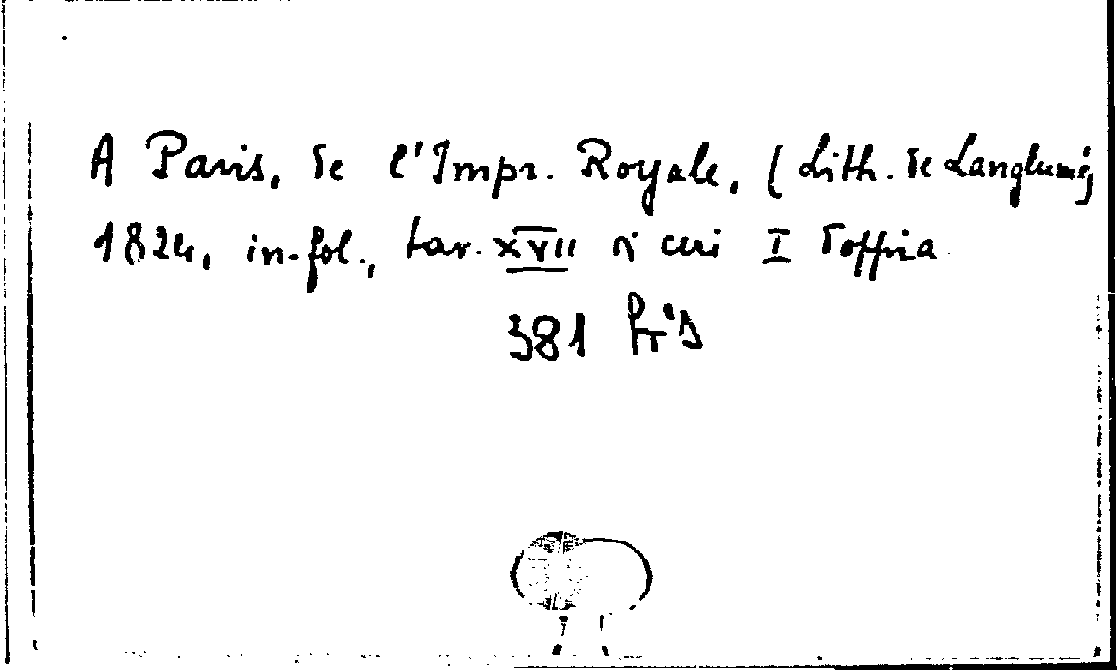 A Paris, de l'Impr. Royale, (Lith. de Langlumé,
1824, in-fol., tav. XVII di cui I doppia
381